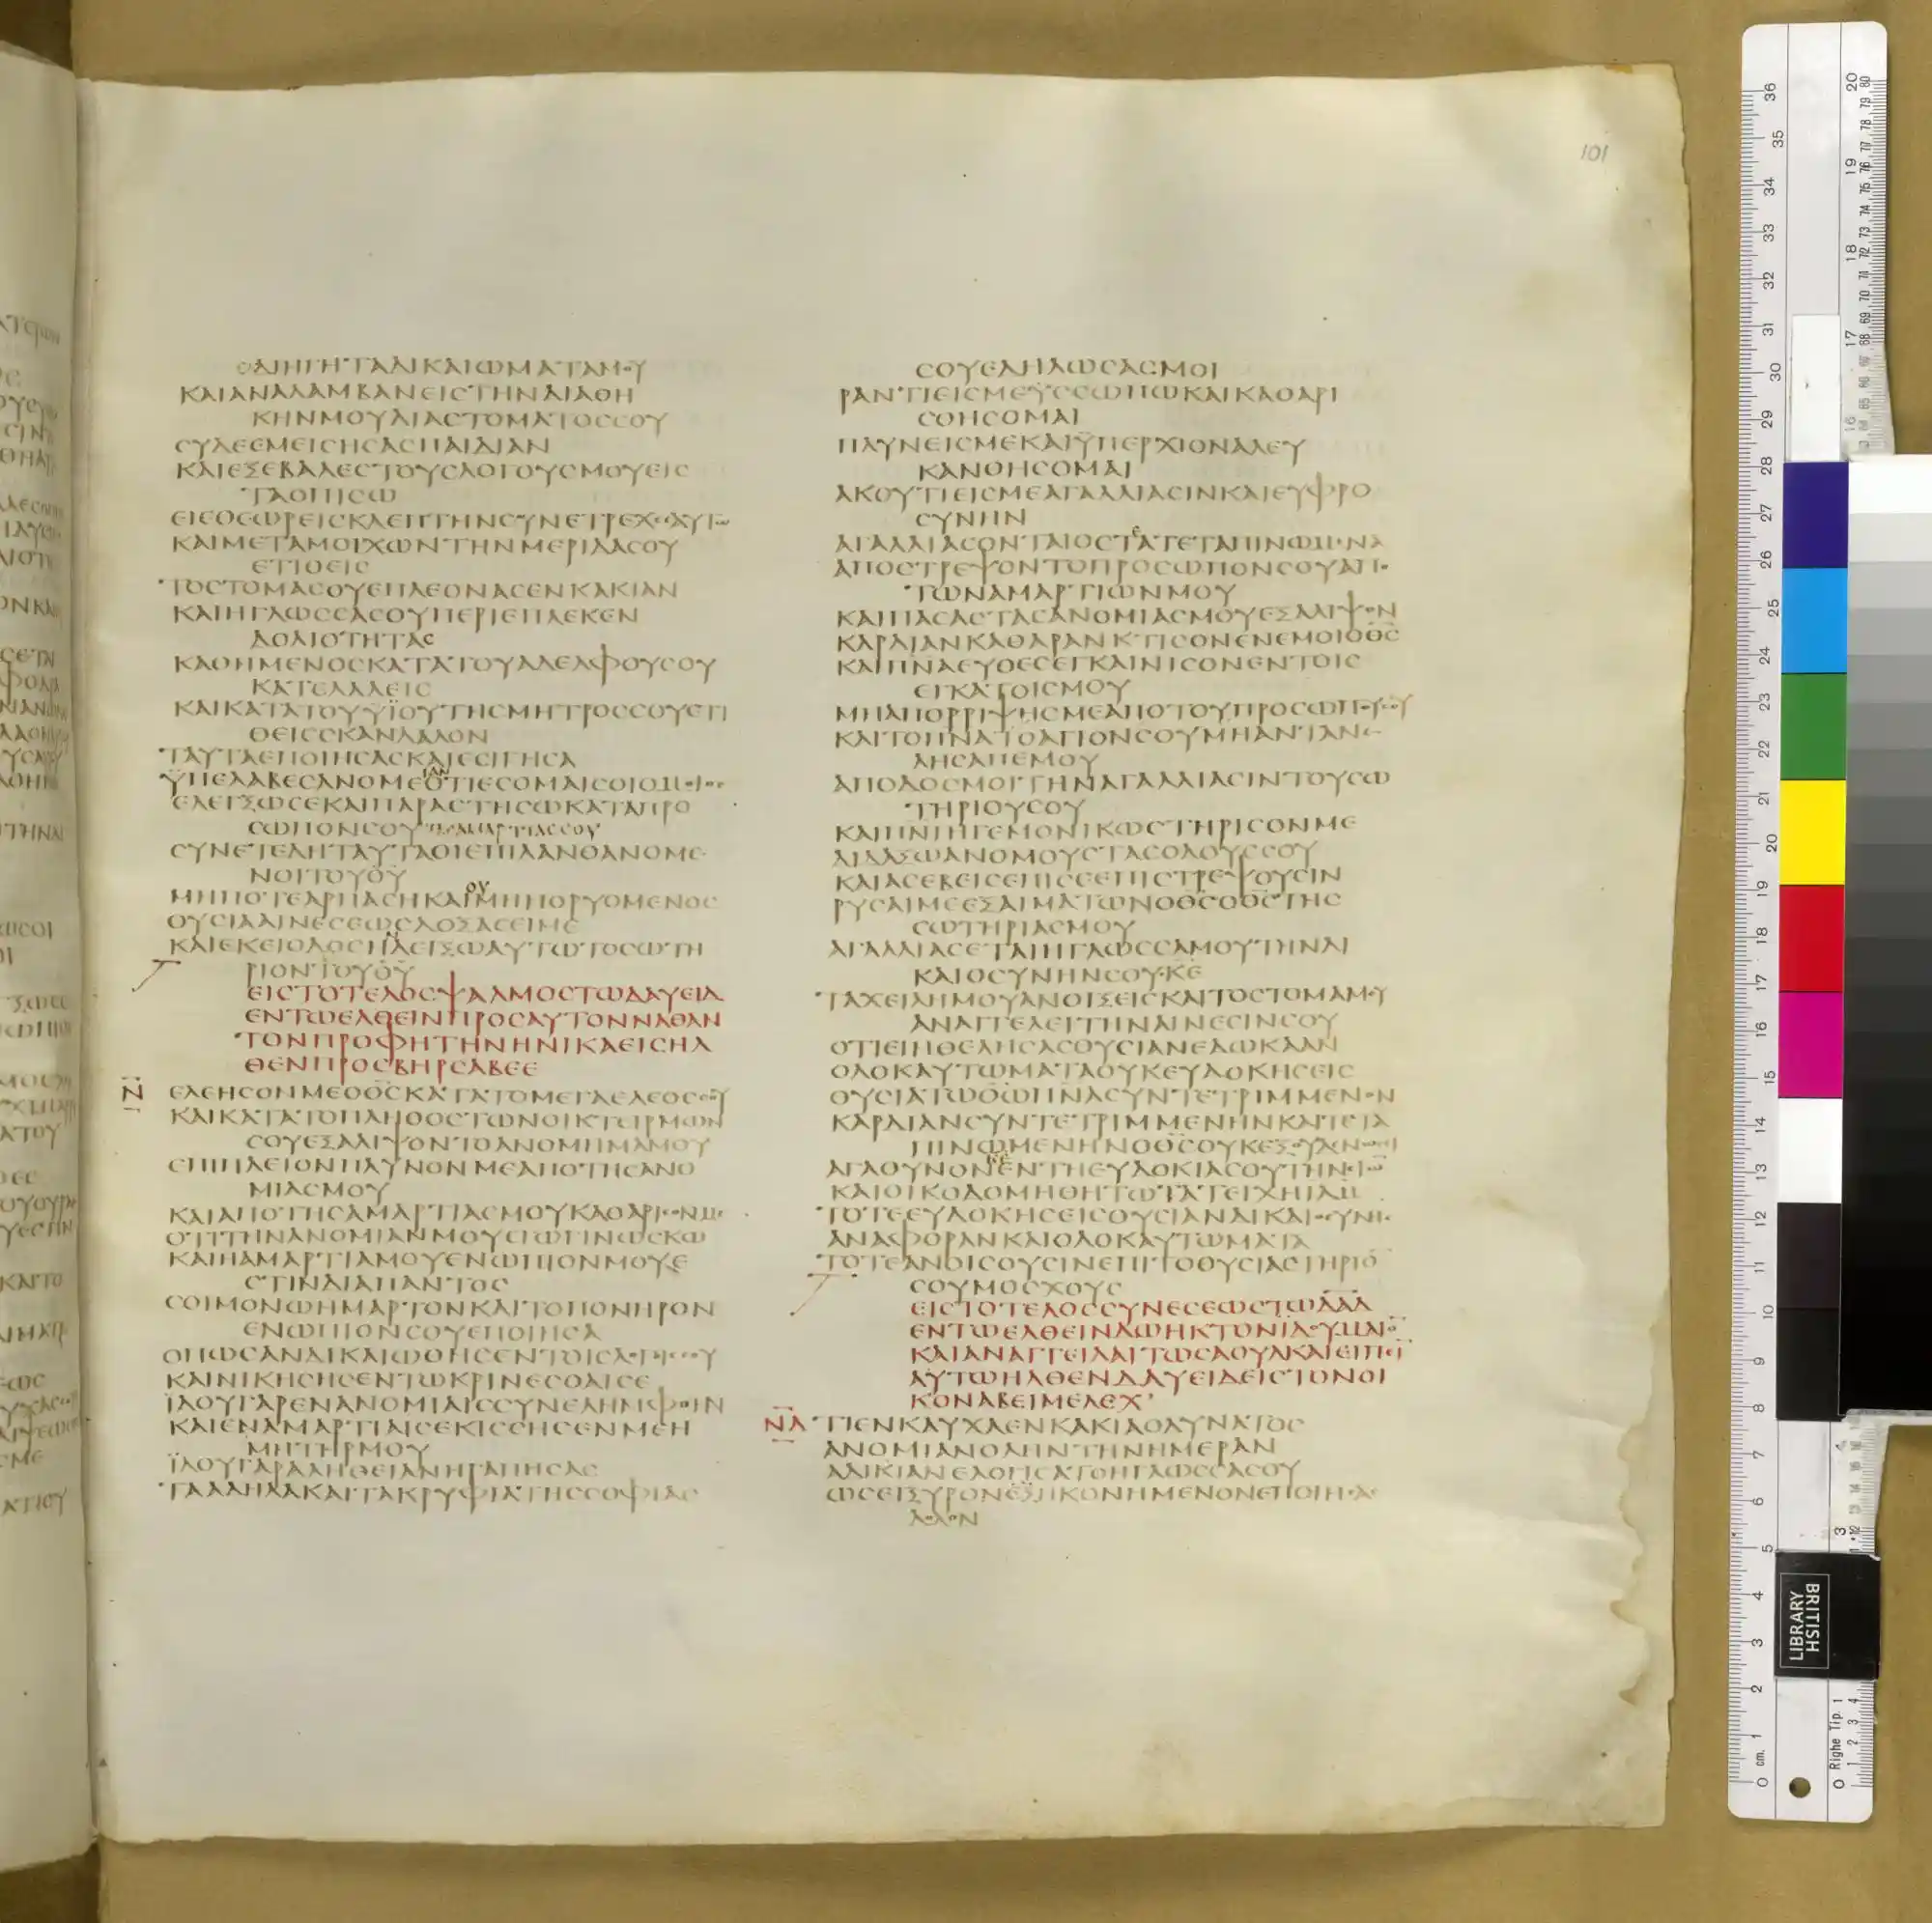 ΔΙΗΓΗΤΑΔΙΚΑΙΩΜΑΤΑΜΟΥ
ΚΑΙΑΝΑΛΑΜΒΑΝΕΙΣΤΗΝΔΙΑΘΗ
ΚΗΝΜΟΥΔΙΑΣΤΟΜΑΤΟΣΣΟΥ
ΣΥΔΕΕΜΕΙΣΗΣΑΣΠΑΙΔΙΑΝ
ΚΑΙΕΞΕΒΑΛΕΣΤΟΥΣΛΟΓΟΥΣΜΟΥΕΙΣ
ΤΑΟΠΙΣΩ
ΕΙΕΘΕΩΡΕΙΣΚΛΕΠΤΗΝΣΥΝΕΤΡΕΧΕΣΑΥΤΩ
ΚΑΙΜΕΤΑΜΟΙΧΩΝΤΗΝΜΕΡΙΔΑΣΟΥ
ΕΤΙΘΕΙΣ
ΤΟΣΤΟΜΑΣΟΥΕΠΛΕΟΝΑΣΕΝΚΑΚΙΑΝ
ΚΑΙΗΓΛΩΣΣΑΣΟΥΠΕΡΙΕΠΛΕΚΕΝ
ΔΟΛΙΟΤΗΤΑΣ
ΚΑΘΗΜΕΝΟΣΚΑΤΑΤΟΥΑΔΕΛΦΟΥΣΟΥ
ΚΑΤΕΛΑΛΕΙΣ
ΚΑΙΚΑΤΑΤΟΥΫΪΟΥΤΗΣΜΗΤΡΟΣΣΟΥΕΤΙ
ΘΕΙΣΣΚΑΝΔΑΛΟΝ
ΤΑΥΤΑΕΠΟΙΗΣΑΣΚΑΙΕΣΙΓΗΣΑ
ΙΑΝ
ΫΠΕΛΑΒΕΣΑΝΟΜΕΟΤΙΕΣΟΜΑΙΣΟΙΟΜΟΙΟΣ
ΕΛΕΓΞΩΣΕΚΑΙΠΑΡΑΣΤΗΣΩΚΑΤΑΠΡΟ
ΣΩΠΟΝΣΟΥΤΑΣΑΜΑΡΤΙΑΣΣΟΥ
ΣΥΝΕΤΕΔΗΤΑΥΤΑΟΙΕΠΙΛΑΝΘΑΝΟΜΕ
ΝΟΙΤΟΥΘΥ
ΟΥ
ΜΗΠΟΤΕΑΡΠΑΣΗΚΑΙΜΗΠΟΡΥΟΜΕΝΟΣ
ΘΥΣΙΑΑΙΝΕΣΕΩΣΔΟΞΑΣΕΙΜΕ
ΚΑΙΕΚΕΙΟΔΟΣΗΔΕΙΞΩΑΥΤΩΤΟΣΩΤΗ
ΡΙΟΝΤΟΥΘΥ
ΕΙΣΤΟΤΕΛΟΣΨΑΛΜΟΣΤΩΔΑΥΕΙΔ
ΕΝΤΩΕΛΘΕΙΝΠΡΟΣΑΥΤΟΝΝΑΘΑΝ
ΤΟΝΠΡΟΦΗΤΗΝΗΝΙΚΑΕΙΣΗΛ
ΘΕΝΠΡΟΣΒΗΡΣΑΒΕΕ
Ν ΕΛΕΗΣΟΝΜΕΟΘΣΚΑΤΑΤΟΜΕΓΑΕΛΕΟΣΣΟΥ
ΚΑΙΚΑΤΑΤΟΠΛΗΘΟΣΤΩΝΟΙΚΤΙΡΜΩΝ
ΣΟΥΕΞΑΛΙΨΟΝΤΟΑΝΟΜΗΜΑΜΟΥ
ΕΠΙΠΛΕΙΟΝΠΛΥΝΟΝΜΕΑΠΟΤΗΣΑΝΟ
ΜΙΑΣΜΟΥ
ΚΑΙΑΠΟΤΗΣΑΜΑΡΤΙΑΣΜΟΥΚΑΘΑΡΙΣΟΝΜΕ
ΟΤΙΤΗΝΑΝΟΜΙΑΝΜΟΥΕΓΩΓΙΝΩΣΚΩ
ΚΑΙΗΑΜΑΡΤΙΑΜΟΥΕΝΩΠΙΟΝΜΟΥΕ
ΣΤΙΝΔΙΑΠΑΝΤΟΣ
ΣΟΙΜΟΝΩΗΜΑΡΤΟΝΚΑΙΤΟΠΟΝΗΡΟΝ
ΕΝΩΠΙΟΝΣΟΥΕΠΟΙΗΣΑ
ΟΠΩΣΑΝΔΙΚΑΙΩΘΗΣΕΝΤΟΙΣΛΟΓΟΙΣΣΟΥ
ΚΑΙΝΙΚΗΣΗΣΕΝΤΩΚΡΙΝΕΣΘΑΙΣΕ
ΪΔΟΥΓΑΡΕΝΑΝΟΜΙΑΙΣΣΥΝΕΛΗΜΦΘΗΝ
ΚΑΙΕΝΑΜΑΡΤΙΑΙΣΕΚΙΣΣΗΣΕΝΜΕΗ
ΜΗΤΗΡΜΟΥ
ΪΔΟΥΓΑΡΑΛΗΘΕΙΑΝΗΓΑΠΗΣΑΣ
ΤΑΑΔΗΛΑΚΑΙΤΑΚΡΥΦΙΑΤΗΣΣΟΦΙΑΣ
101
ΣΟΥΕΔΗΛΩΣΑΣΜΟΙ
ΡΑΝΤΙΕΙΣΜΕΥΣΣΩΠΩΚΑΙΚΑΘΑΡΙ
ΣΘΗΣΟΜΑΙ
ΠΛΥΝΕΙΣΜΕΚΑΙΫΠΕΡΧΙΟΝΑΛΕΥ
ΚΑΝΘΗΣΟΜΑΙ
ΑΚΟΥΤΙΕΙΣΜΕΑΓΑΛΛΙΑΣΙΝΚΑΙΕΥΦΡΟ
ΣΥΝΗΝ
ΑΓΑΛΛΙΑΣΟΝΤΑΙΟΣΤΑΤΕΤΑΠΙΝΩΜΕΝΑ
ΑΠΟΣΤΡΕΨΟΝΤΟΠΡΟΣΩΠΟΝΣΟΥΑΠΟ
ΤΩΝΑΜΑΡΤΙΩΝΜΟΥ
ΚΑΙΠΑΣΑΣΤΑΣΑΝΟΜΙΑΣΜΟΥΕΞΑΛΙΨΟΝ
ΚΑΡΔΙΑΝΚΑΘΑΡΑΝΚΤΙΣΟΝΕΝΕΜΟΙΟΘΣ
ΚΑΙΠΝΑΕΥΘΕΣΕΓΚΑΙΝΙΣΟΝΕΝΤΟΙΣ
ΕΓΚΑΤΟΙΣΜΟΥ
ΜΗΑΠΟΡΡΙΨΗΣΜΕΑΠΟΤΟΥΠΡΟΣΩΠΟΥΣΟΥ
ΚΑΙΤΟΠΝΑΤΟΑΓΙΟΝΣΟΥΜΗΑΝΤΑΝΕ
ΛΗΣΑΠΕΜΟΥ
ΑΠΟΔΟΣΜΟΙΤΗΝΑΓΑΛΛΙΑΣΙΝΤΟΥΣΩ
ΤΗΡΙΟΥΣΟΥ
ΚΑΙΠΝΙΗΓΕΜΟΝΙΚΩΣΤΗΡΙΣΟΝΜΕ
ΔΙΔΑΞΩΑΝΟΜΟΥΣΤΑΣΟΔΟΥΣΣΟΥ
ΚΑΙΑΣΕΒΕΙΣΕΠΙΣΕΕΠΙΣΤΡΕΨΟΥΣΙΝ
ΡΥΣΑΙΜΕΕΞΑΙΜΑΤΩΝΟΘΣΟΘΣΤΗΣ
ΣΩΤΗΡΙΑΣΜΟΥ
ΑΓΑΛΛΙΑΣΕΤΑΙΗΓΛΩΣΣΑΜΟΥΤΗΝΔΙ
ΚΑΙΟΣΥΝΗΝΣΟΥΚΕ
ΤΑΧΕΙΛΗΜΟΥΑΝΟΙΞΕΙΣΚΑΙΤΟΣΤΟΜΑΜΟΥ
ΑΝΑΓΓΕΛΕΙΤΗΝΑΙΝΕΣΙΝΣΟΥ
ΟΤΙΕΙΗΘΕΛΗΣΑΣΘΥΣΙΑΝΕΔΩΚΑΑΝ
ΟΛΟΚΑΥΤΩΜΑΤΑΟΥΚΕΥΔΟΚΗΣΕΙΣ
ΘΥΣΙΑΤΩΘΩΠΝΑΣΥΝΤΕΤΡΙΜΜΕΝΟΝ
ΚΑΡΔΙΑΝΣΥΝΤΕΤΡΙΜΜΕΝΗΝΚΑΙΤΕΤΑ
ΠΙΝΩΜΕΝΗΝΟΘΣΟΥΚΕΞΟΥΔΕΝΩΣΕΙ
ΚΕ
ΑΓΑΘΥΝΟΝΕΝΤΗΕΥΔΟΚΙΑΣΟΥΤΗΝΣΙΩ
ΚΑΙΟΙΚΟΔΟΜΗΘΗΤΩΤΑΤΕΙΧΗΙΛΗΜ
ΤΟΤΕΕΥΔΟΚΗΣΕΙΣΘΥΣΙΑΝΔΙΚΑΙΟΣΥΝΗΣ
ΑΝΑΦΟΡΑΝΚΑΙΟΛΟΚΑΥΤΩΜΑΤΑ
ΤΟΤΕΑΝΟΙΣΟΥΣΙΝΕΠΙΤΟΘΥΣΙΑΣΤΗΡΙΟ
ΣΟΥΜΟΣΧΟΥΣ
ΕΙΣΤΟΤΕΛΟΣΣΥΝΕΣΕΩΣΤΩΔΑΔ
ΕΝΤΩΕΛΘΕΙΝΔΩΗΚΤΟΝΪΔΟΥΜΑΙΟ
ΚΑΙΑΝΑΓΓΕΙΛΑΙΤΩΣΑΟΥΛΚΑΙΕΙΠΕΙ
ΑΥΤΩΗΛΘΕΝΔΑΥΕΙΔΕΙΣΤΟΝΟΙ
ΚΟΝΑΒΕΙΜΕΛΕΧ
ΝΑ ΤΙΕΝΚΑΥΧΑΕΝΚΑΚΙΑΟΔΥΝΑΤΟΣ
ΑΝΟΜΙΑΝΟΛΗΝΤΗΝΗΜΕΡΑΝ
ΑΔΙΚΙΑΝΕΛΟΓΙΣΑΤΟΗΓΛΩΣΣΑΣΟΥ
ΩΣΕΙΞΥΡΟΝΕΞΗΚΟΝΗΜΕΝΟΝΕΠΟΙΗΣΑΣ
ΔΟΛΟΝ
BRITISH
LIBRARY